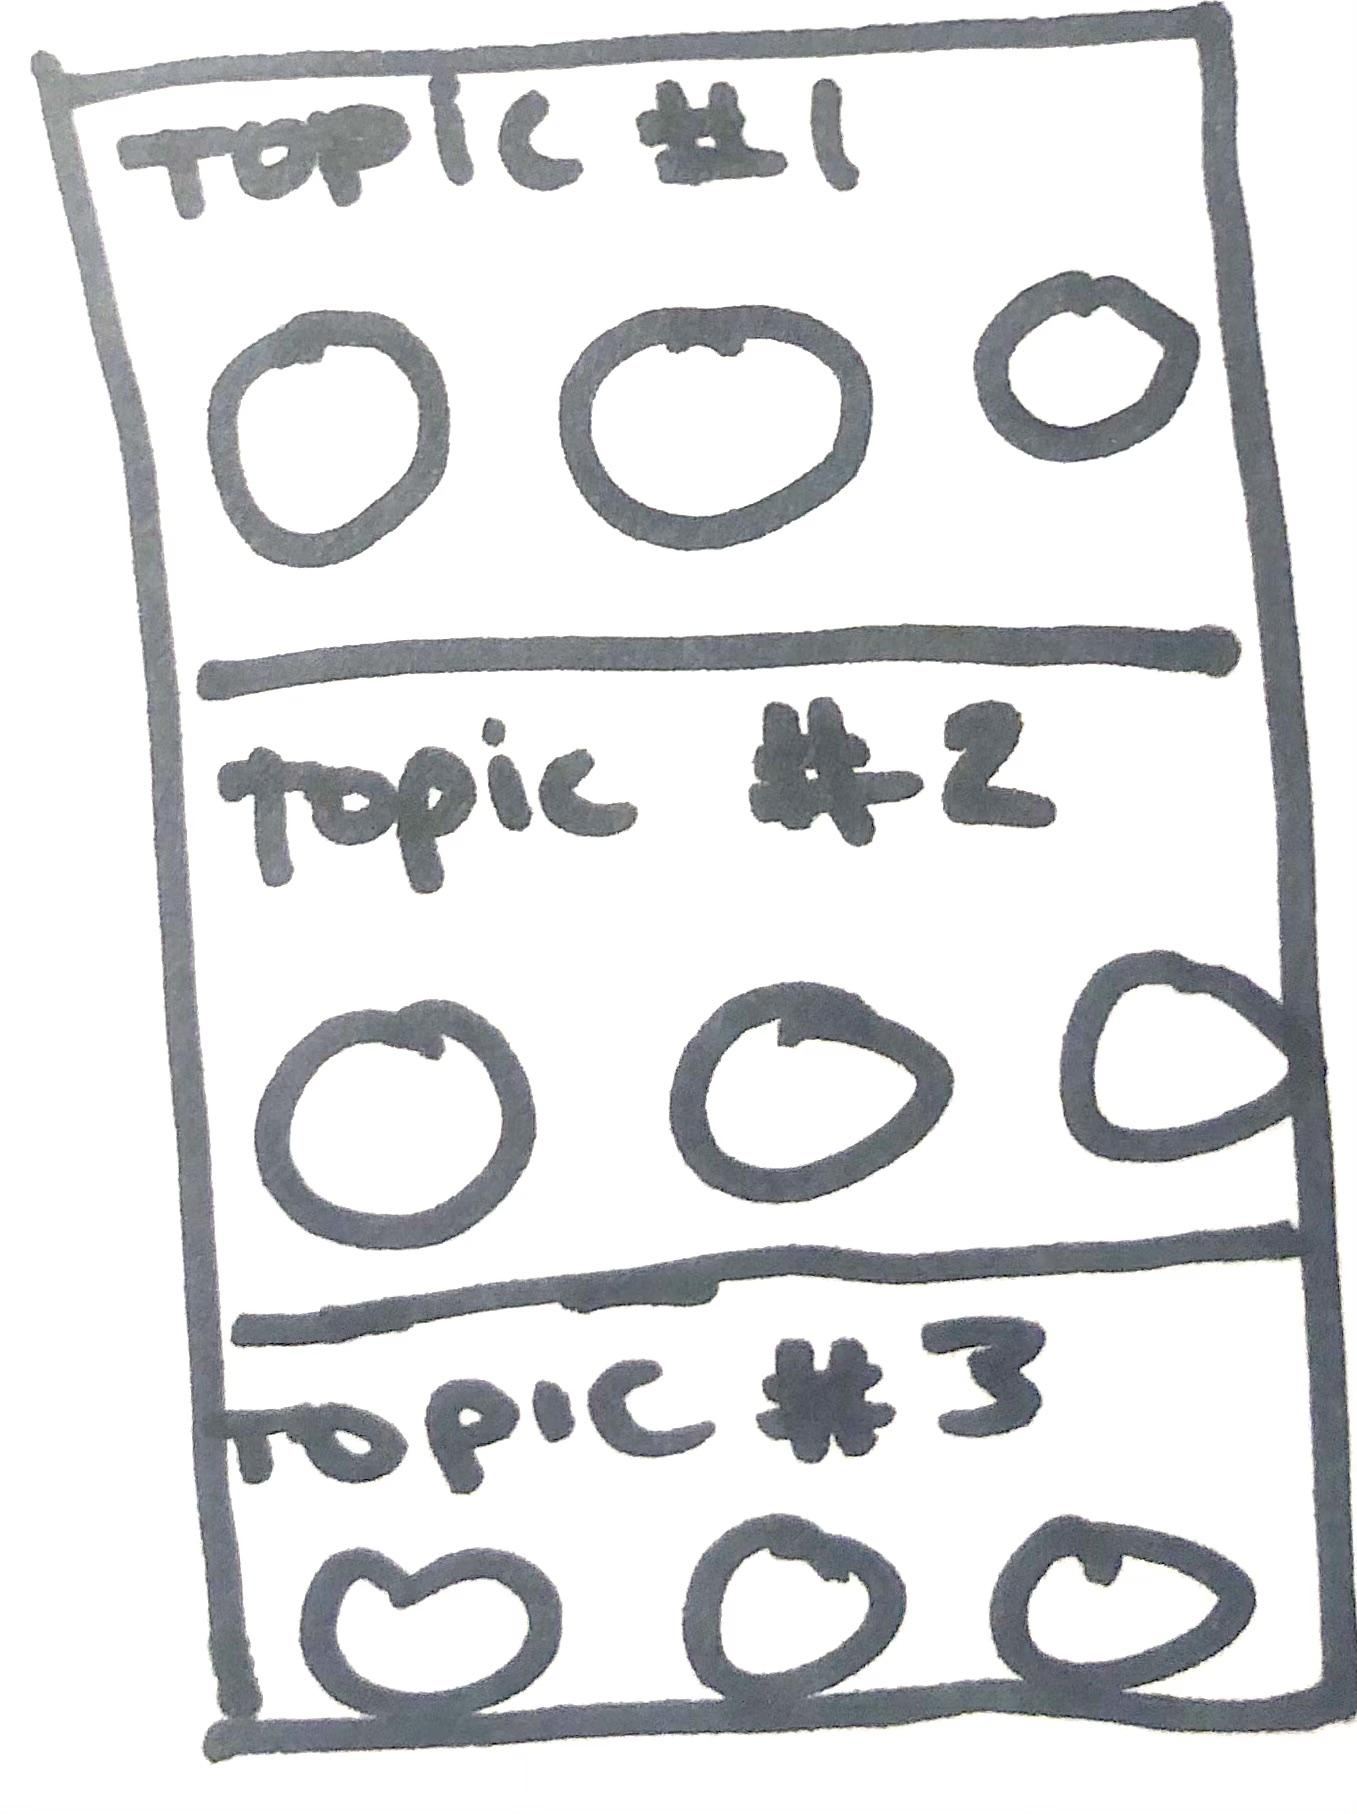 TOPIC #1
Topic #2
TOPIC #3